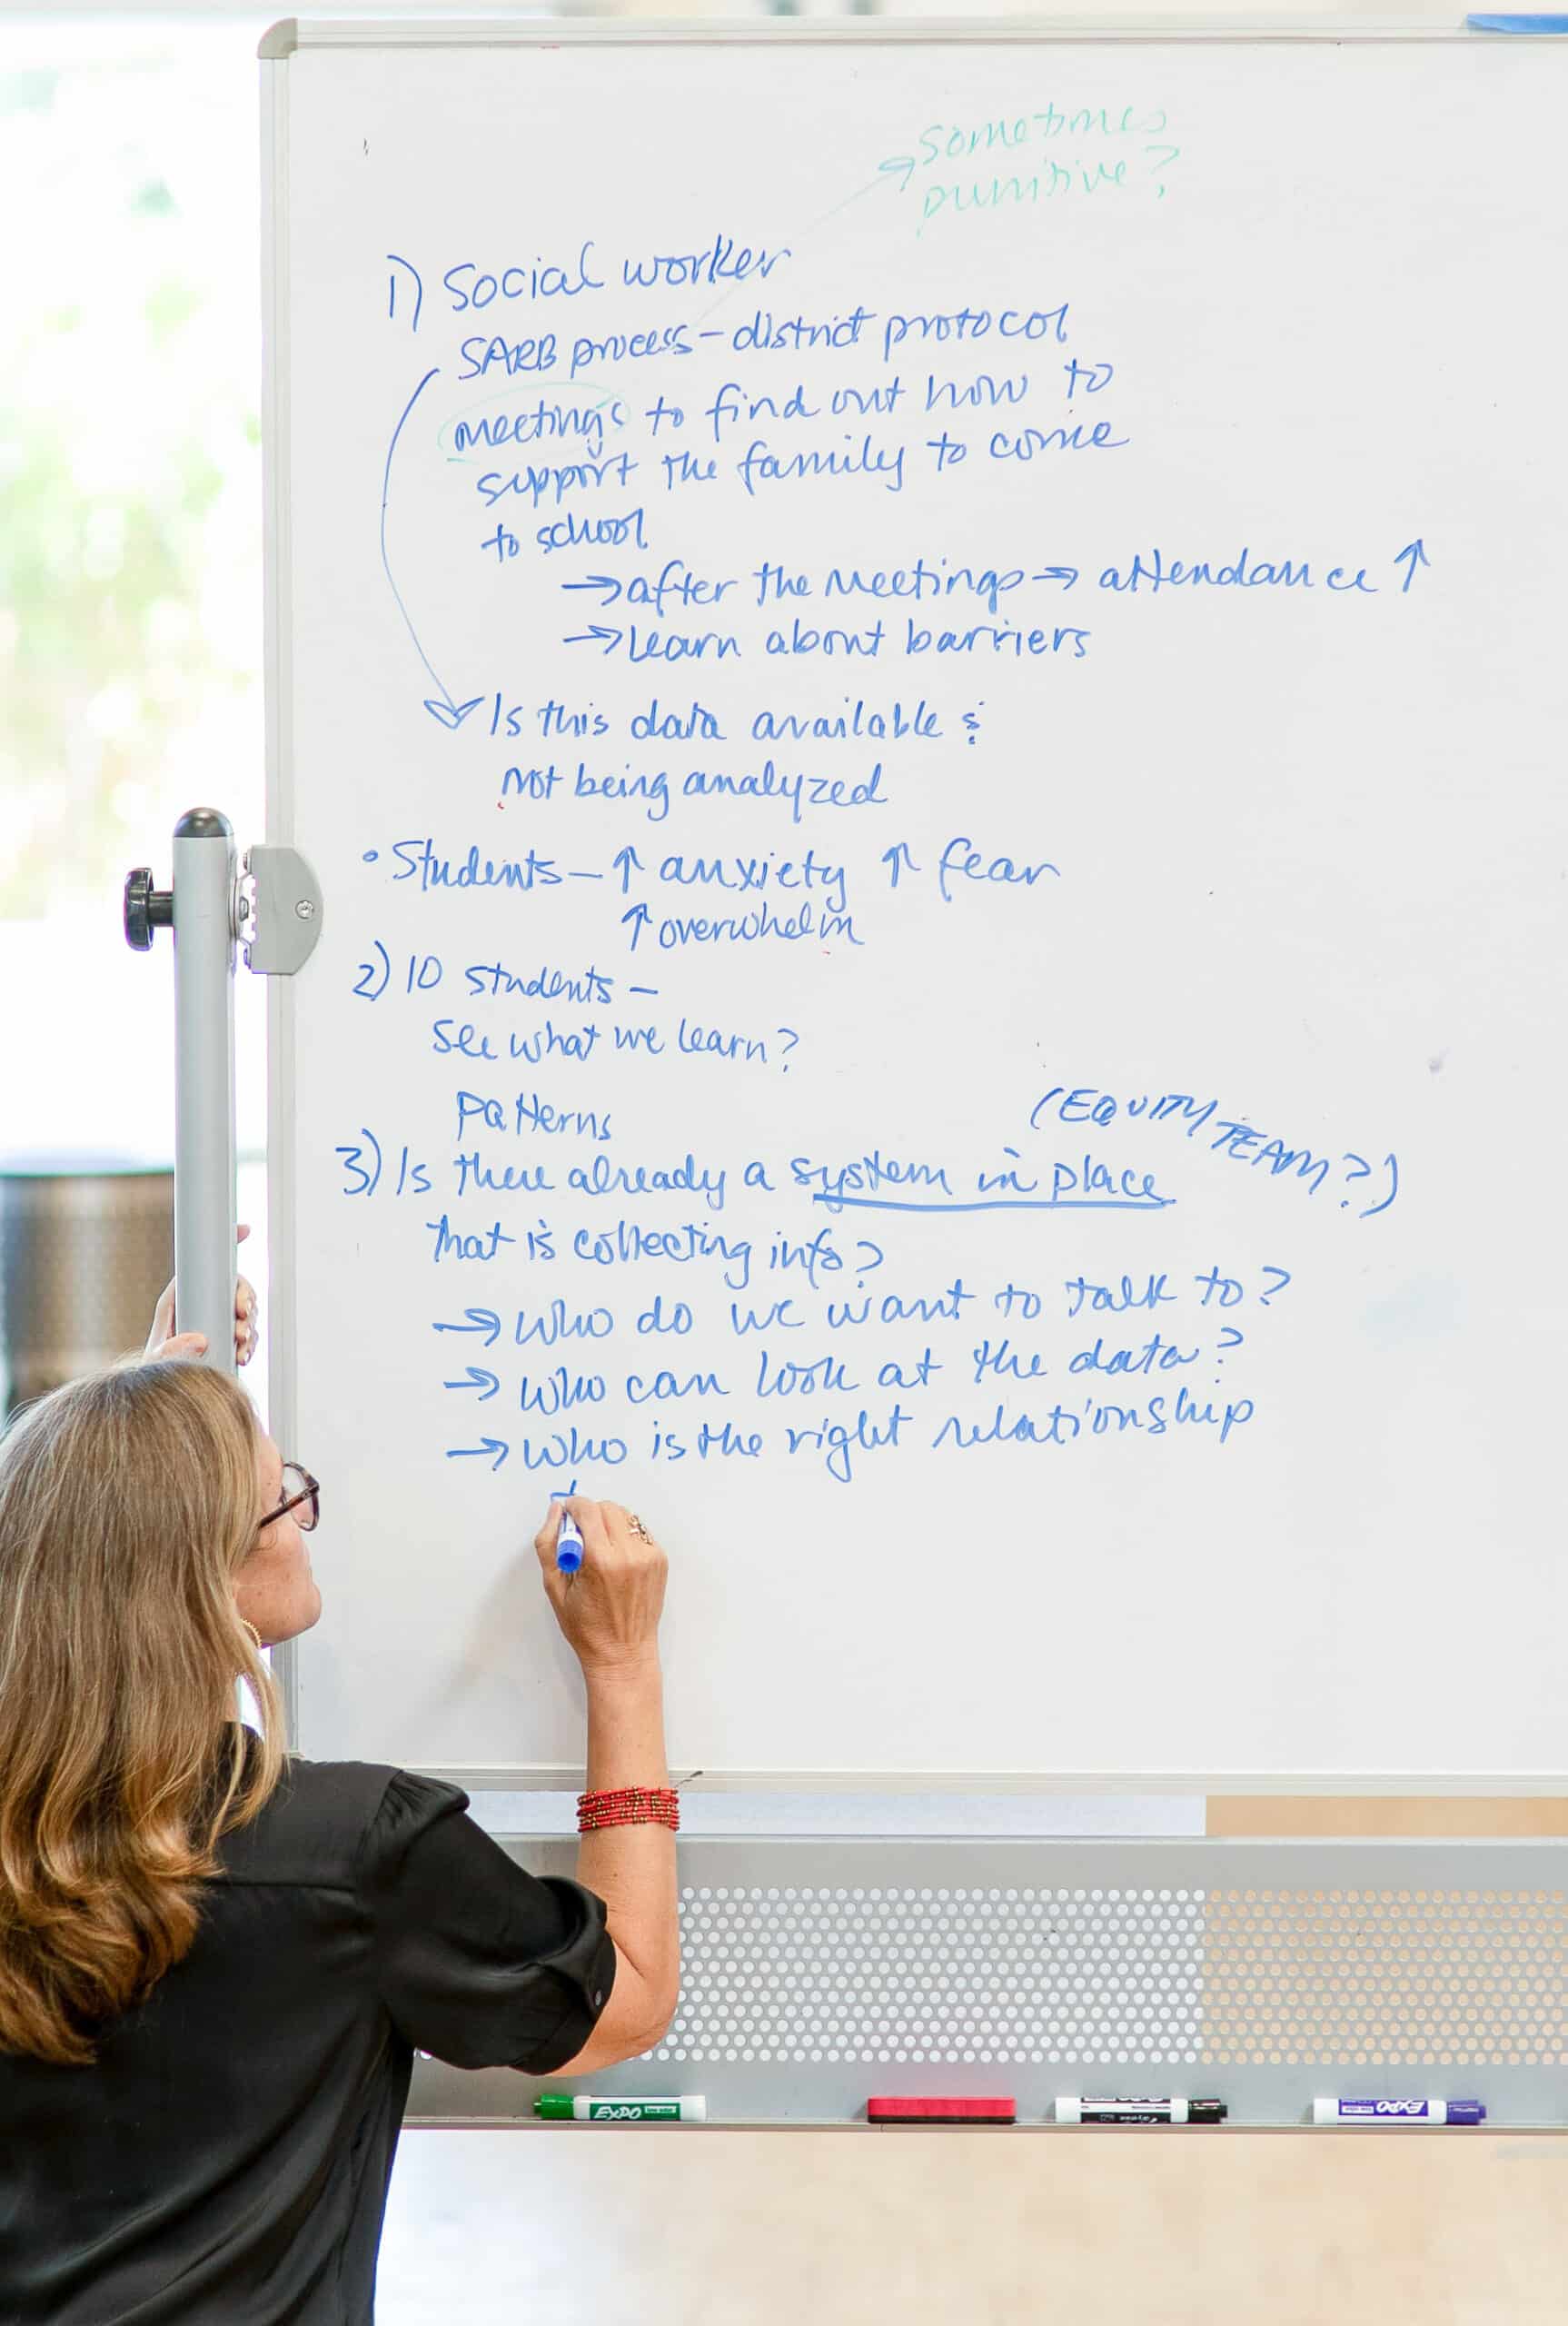 sometimes
punitive?
1) Social worker
SARB process – district protocol
meetings to find out how to
support the family to come
to school
→ after the meetings → attendance ↑
→ learn about barriers
Is this data available &
not being analyzed
• Students – ↑ anxiety ↑ fear
↑ overwhelm
2) 10 students –
see what we learn?
patterns
(EQUITY TEAM?)
3) Is there already a system in place
that is collecting info?
→ who do we want to talk to?
→ who can look at the data?
→ who is the right relationship
t
EXPO
EXPO